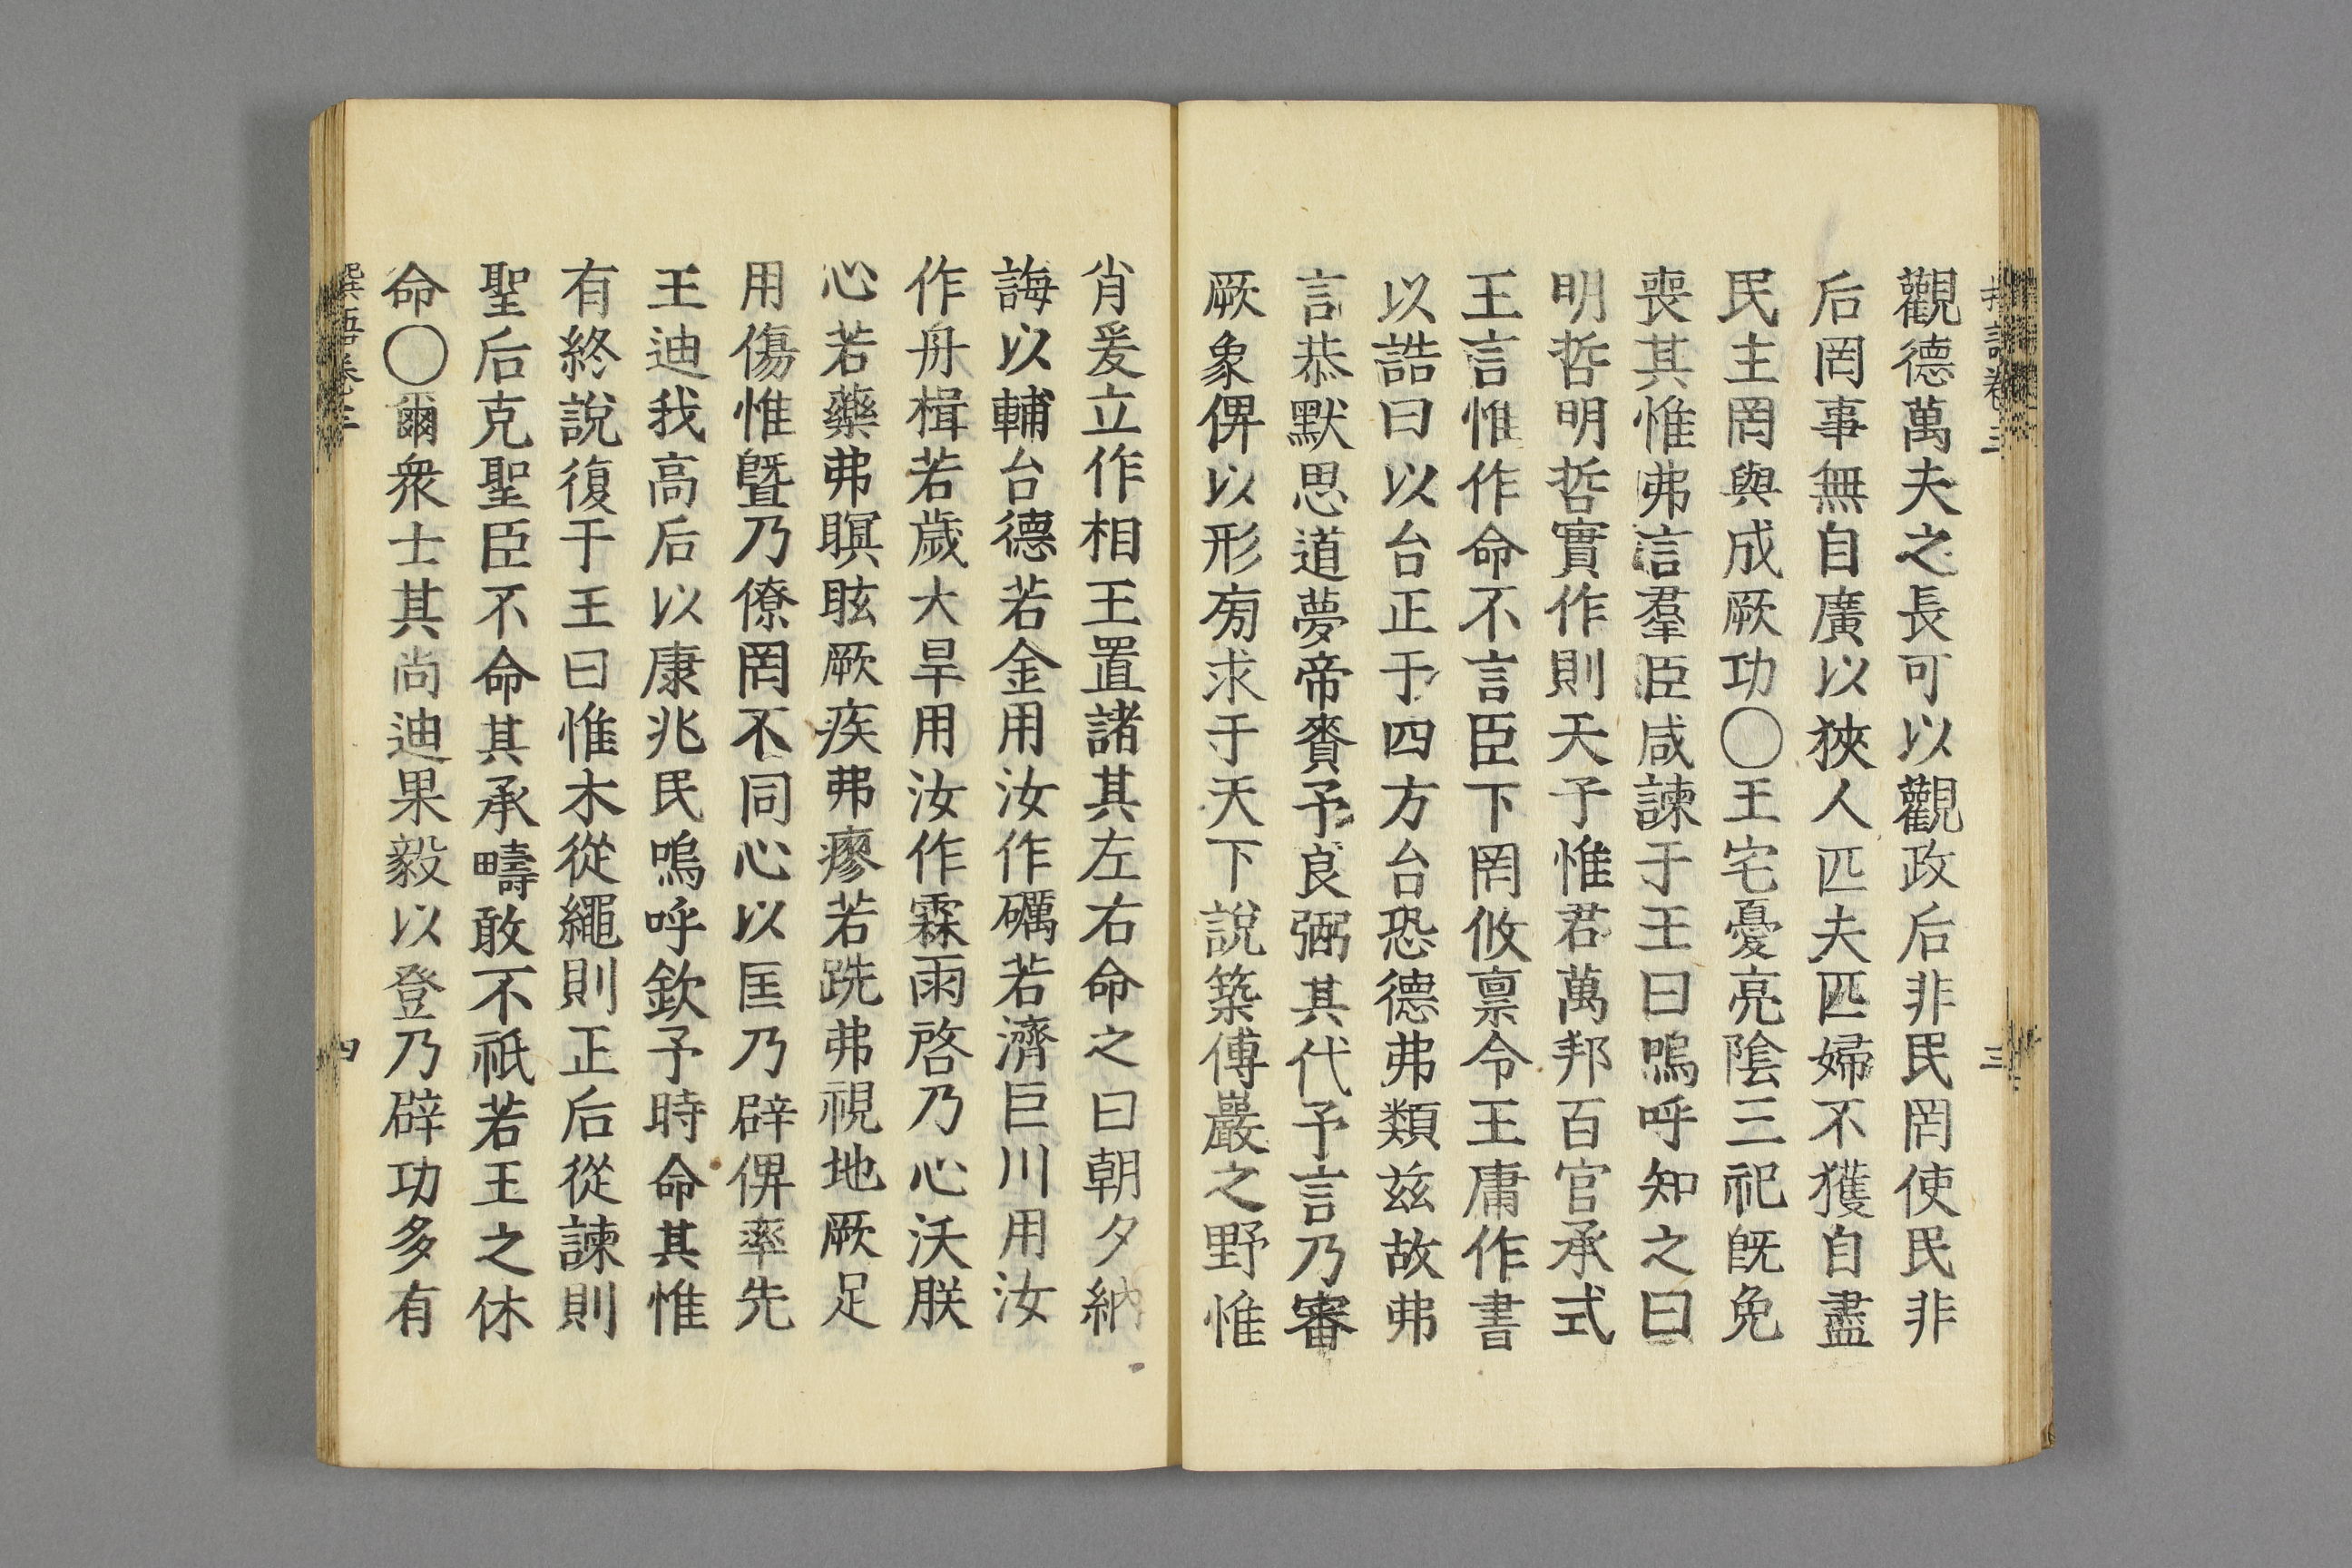 觀德萬夫之長可以觀政后非民罔使民非
后罔事無自廣以狹人匹夫匹婦不獲自盡
民主罔與成厥功○王宅憂亮陰三祀旣免
喪其惟弗言羣臣咸諫于王曰嗚呼知之曰
明哲明哲實作則天子惟君萬邦百官承式
王言惟作命不言臣下罔攸禀令王庸作書
以誥曰以台正于四方台恐德弗類茲故弗
言恭默思道夢帝賚予良弼其代予言乃審
厥象俾以形旁求于天下說築傅巖之野惟
肖爰立作相王置諸其左右命之曰朝夕納
誨以輔台德若金用汝作礪若濟巨川用汝
作舟楫若歲大旱用汝作霖雨啓乃心沃朕
心若藥弗瞑眩厥疾弗瘳若跣弗視地厥足
用傷惟曁乃僚罔不同心以匡乃辟俾率先
王迪我高后以康兆民嗚呼欽予時命其惟
有終說復于王曰惟木從繩則正后從諫則
聖后克聖臣不命其承疇敢不祇若王之休
命○爾衆士其尚迪果毅以登乃辟功多有
四